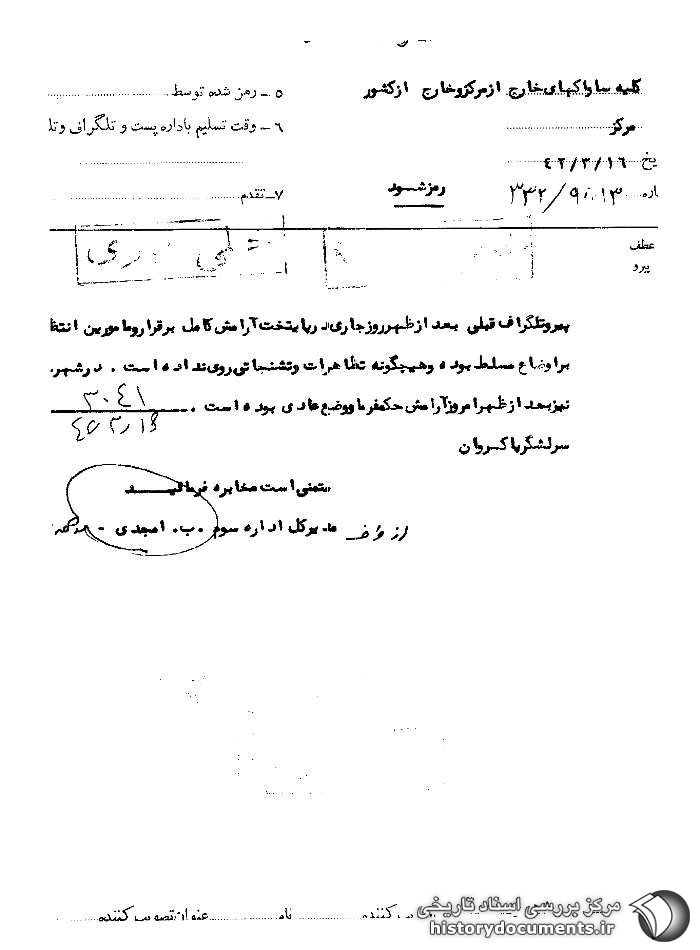 کلیه ساواکهای خارج از مرکز و خارج از کشور
مرکز
یخ ۴۲/۳/۱۶
اره ۳۳۲/۹۰۱۳
رمز شود
۵ ـ رمز شده توسط
۶ ـ وقت تسلیم باداره پست و تلگراف وتل
۷ـ تقدم
عطف
پیرو
پیرو تلگراف قبلی بعد از ظهر روز جاری در پایتخت آرامش کامل برقرار و مامورین انتظ
بر اوضاع مسلط بوده و هیچگونه تظاهرات و تشنجاتی روی نداده است . در شهر
نیز بعد از ظهر امروز آرامش حکمفرما و وضع عادی بوده است .
۳۰۴۱
۴۲/۳/۱۶
سرلشگر پاکروان
متمنی است مخابره فرمائید
مدیر کل اداره سوم .ب. امجدی
نام
عنوان تصویب کننده
مرکز بررسی اسناد تاریخی
historydocuments.ir